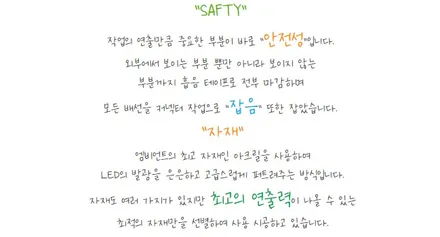 "SAFTY"
작업의 연출만큼 중요한 부분이 바로 "안전성"입니다.
외부에서 보이는 부분 뿐만 아니라 보이지 않는
부분까지 흡음 테이프로 전부 마감하며
모든 배선을 커넥터 작업으로 "잡음" 또한 잡았습니다.
"자재"
엠비언트의 최고 자재인 아크릴을 사용하여
LED의 발광을 은은하고 고급스럽게 퍼트려주는 방식입니다.
자재도 여러 가지가 있지만 최고의 연출력이 나올 수 있는
최적의 자재만을 선별하여 사용 시공하고 있습니다.